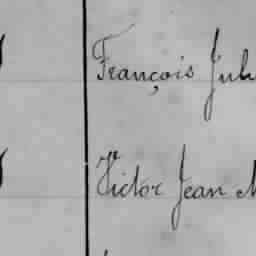 François Jul
Victor Jean M